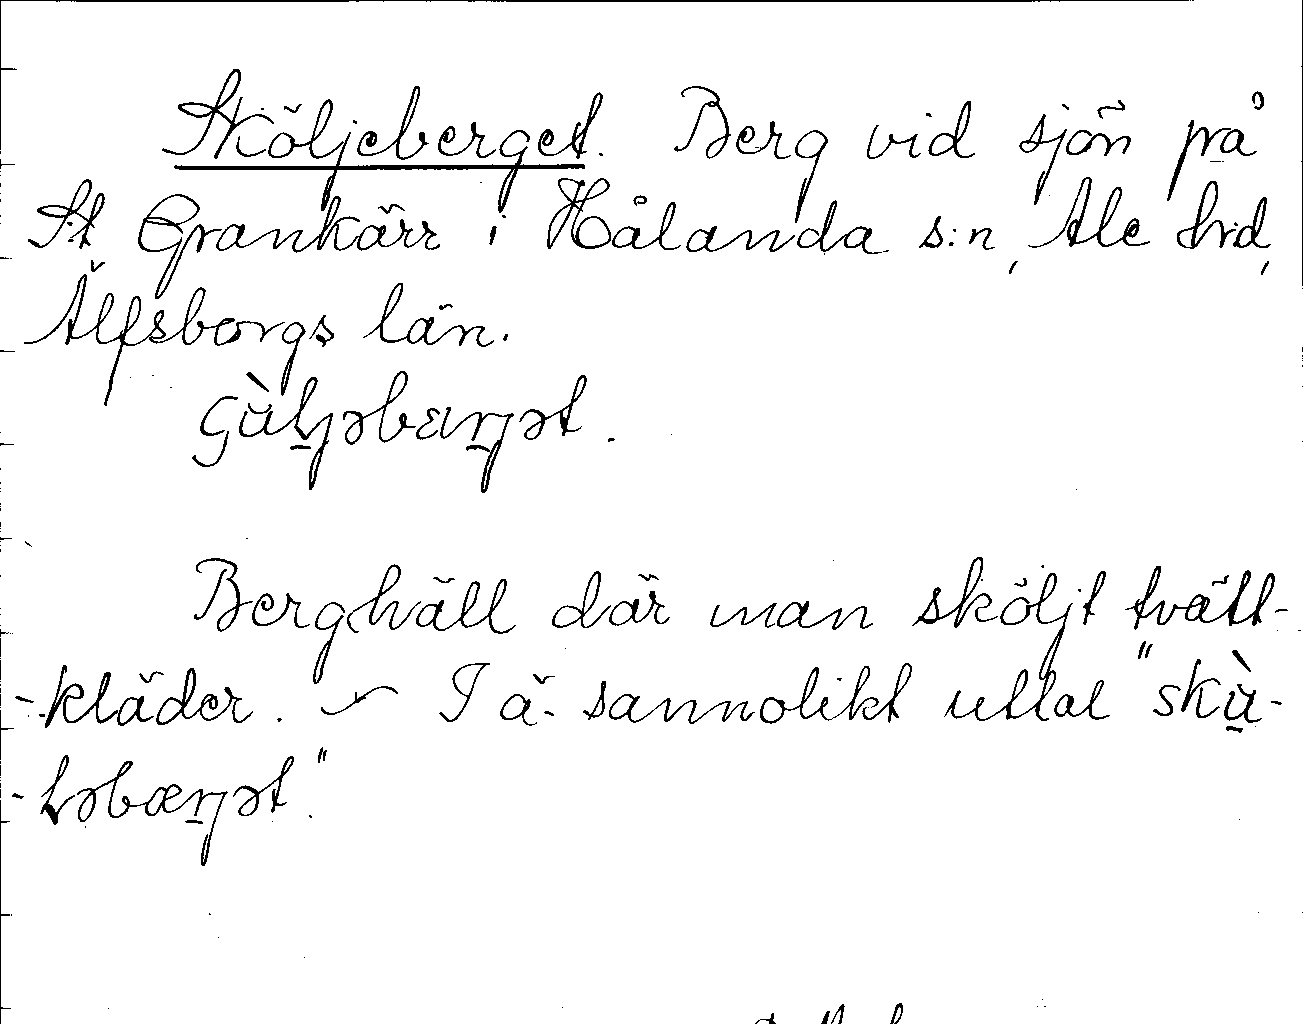 Sköljeberget. Berg vid sjön på
St Grankärr i Hålanda s:n, Ale hrd,
Älfsborgs län.
Berghäll där man sköljt tvätt-
-kläder. ~ I ä. sannolikt uttal "skù-